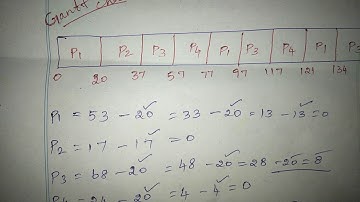 Gantt
P1 P2 P3 P4 P1 P3 P4 P1 P3
0 20 37 57 77 97 117 121 134
P1 = 53 - 20 = 33 - 20 = 13 - 13 = 0
P2 = 17 - 17 = 0
P3 = 68 - 20 = 48 - 20 = 28 - 20 = 8
P4 = 24 - 20 = 4 - 4 = 0